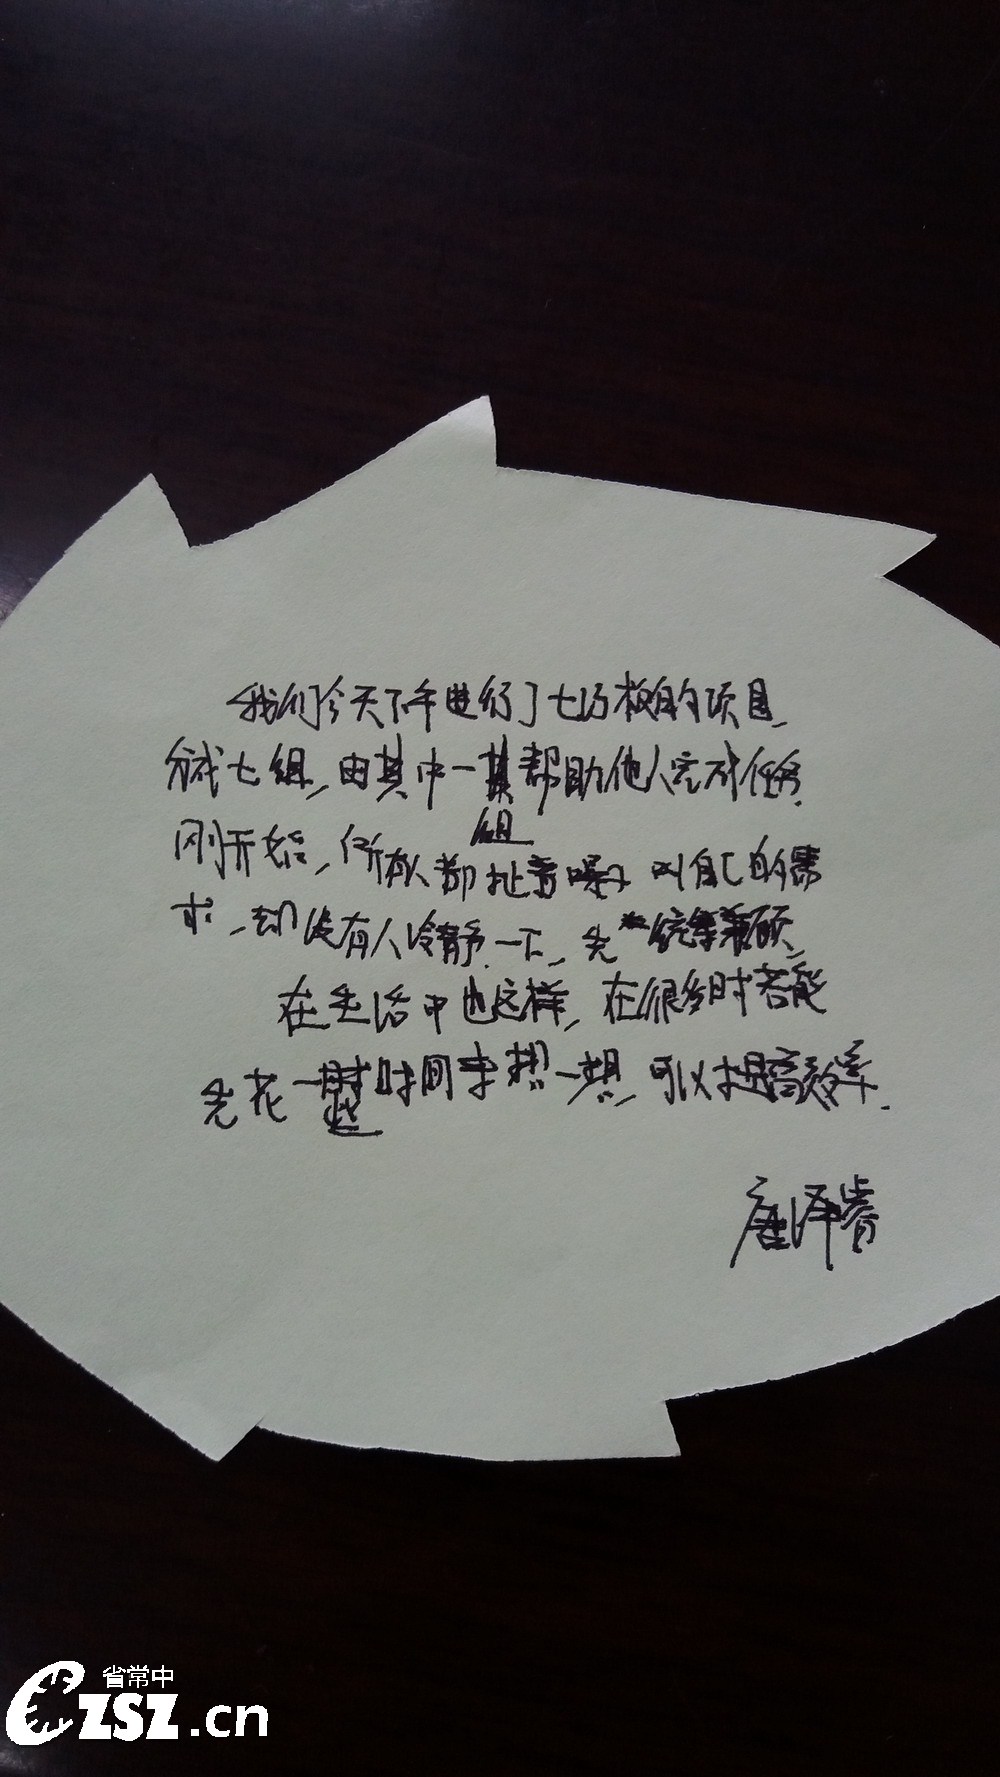 我们今天下午进行了七巧板的项目,
分成七组,由其中一组帮助他人完成任务.
刚开始,所有人都扯着嗓子叫自己的需
求,却没有人冷静一下,先统筹兼顾,
在生活中也这样,在很多时若能
先花一些时间来想一想,可以提高效率.
唐泽睿
省常中
CZSZ.cn